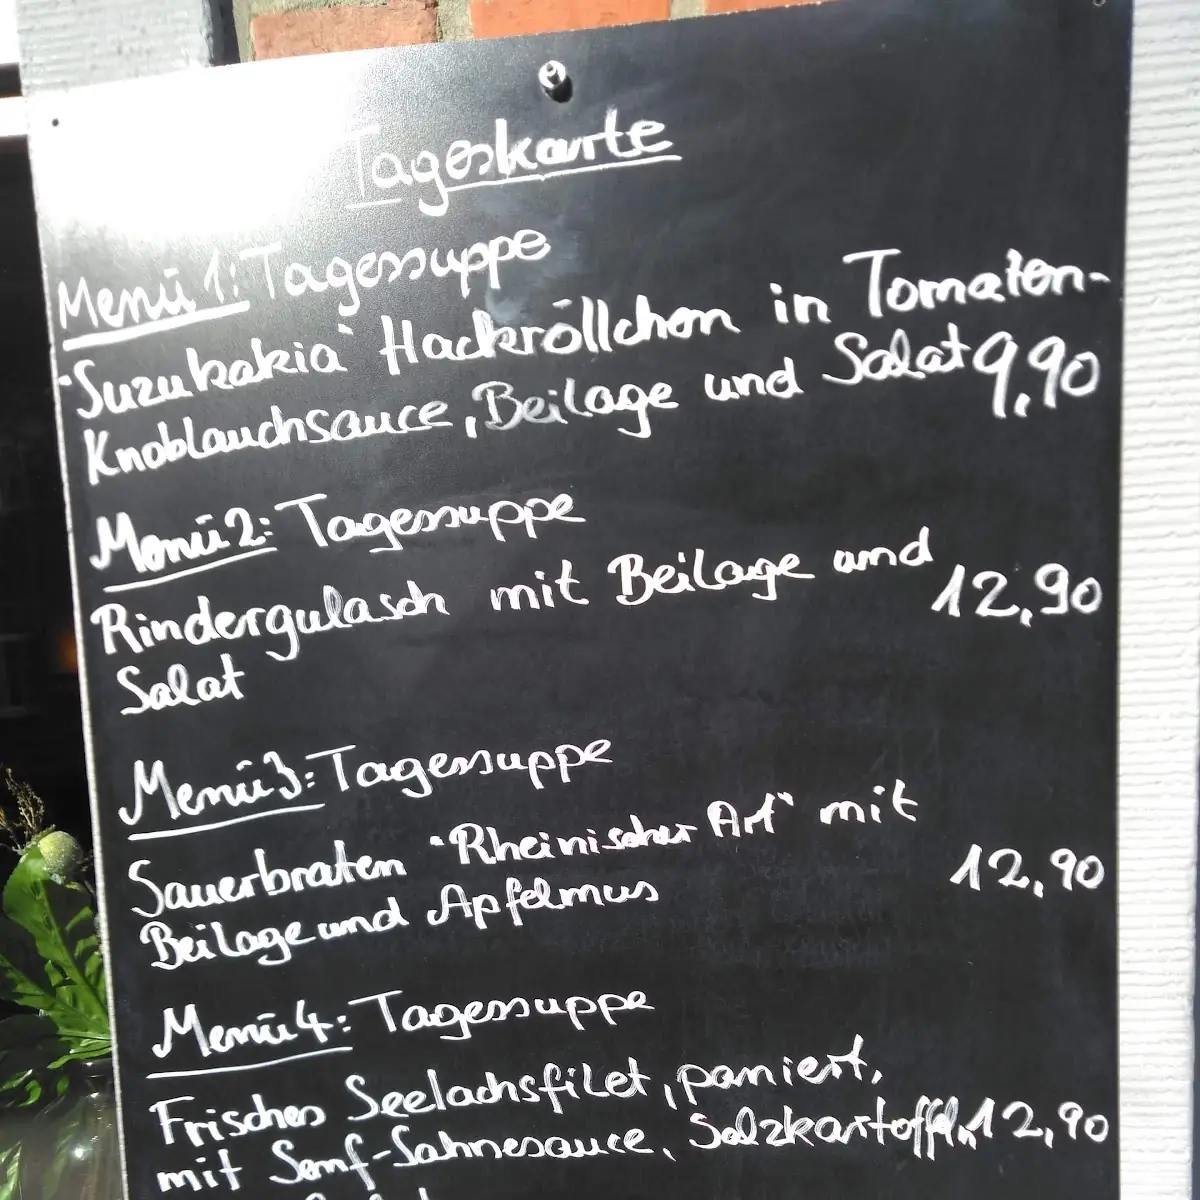 Tageskarte
Menü 1: Tagessuppe
"Suzukakia" Hackröllchen in Tomaten-
Knoblauchsauce, Beilage und Salat 9,90
Menü 2: Tagessuppe
Rindergulasch mit Beilage und 12,90
Salat
Menü 3: Tagessuppe
Sauerbraten "Rheinischer Art" mit
Beilage und Apfelmus 12,90
Menü 4: Tagessuppe
Frisches Seelachsfilet, paniert,
mit Senf-Sahnesauce, Salzkartoffeln 12,90